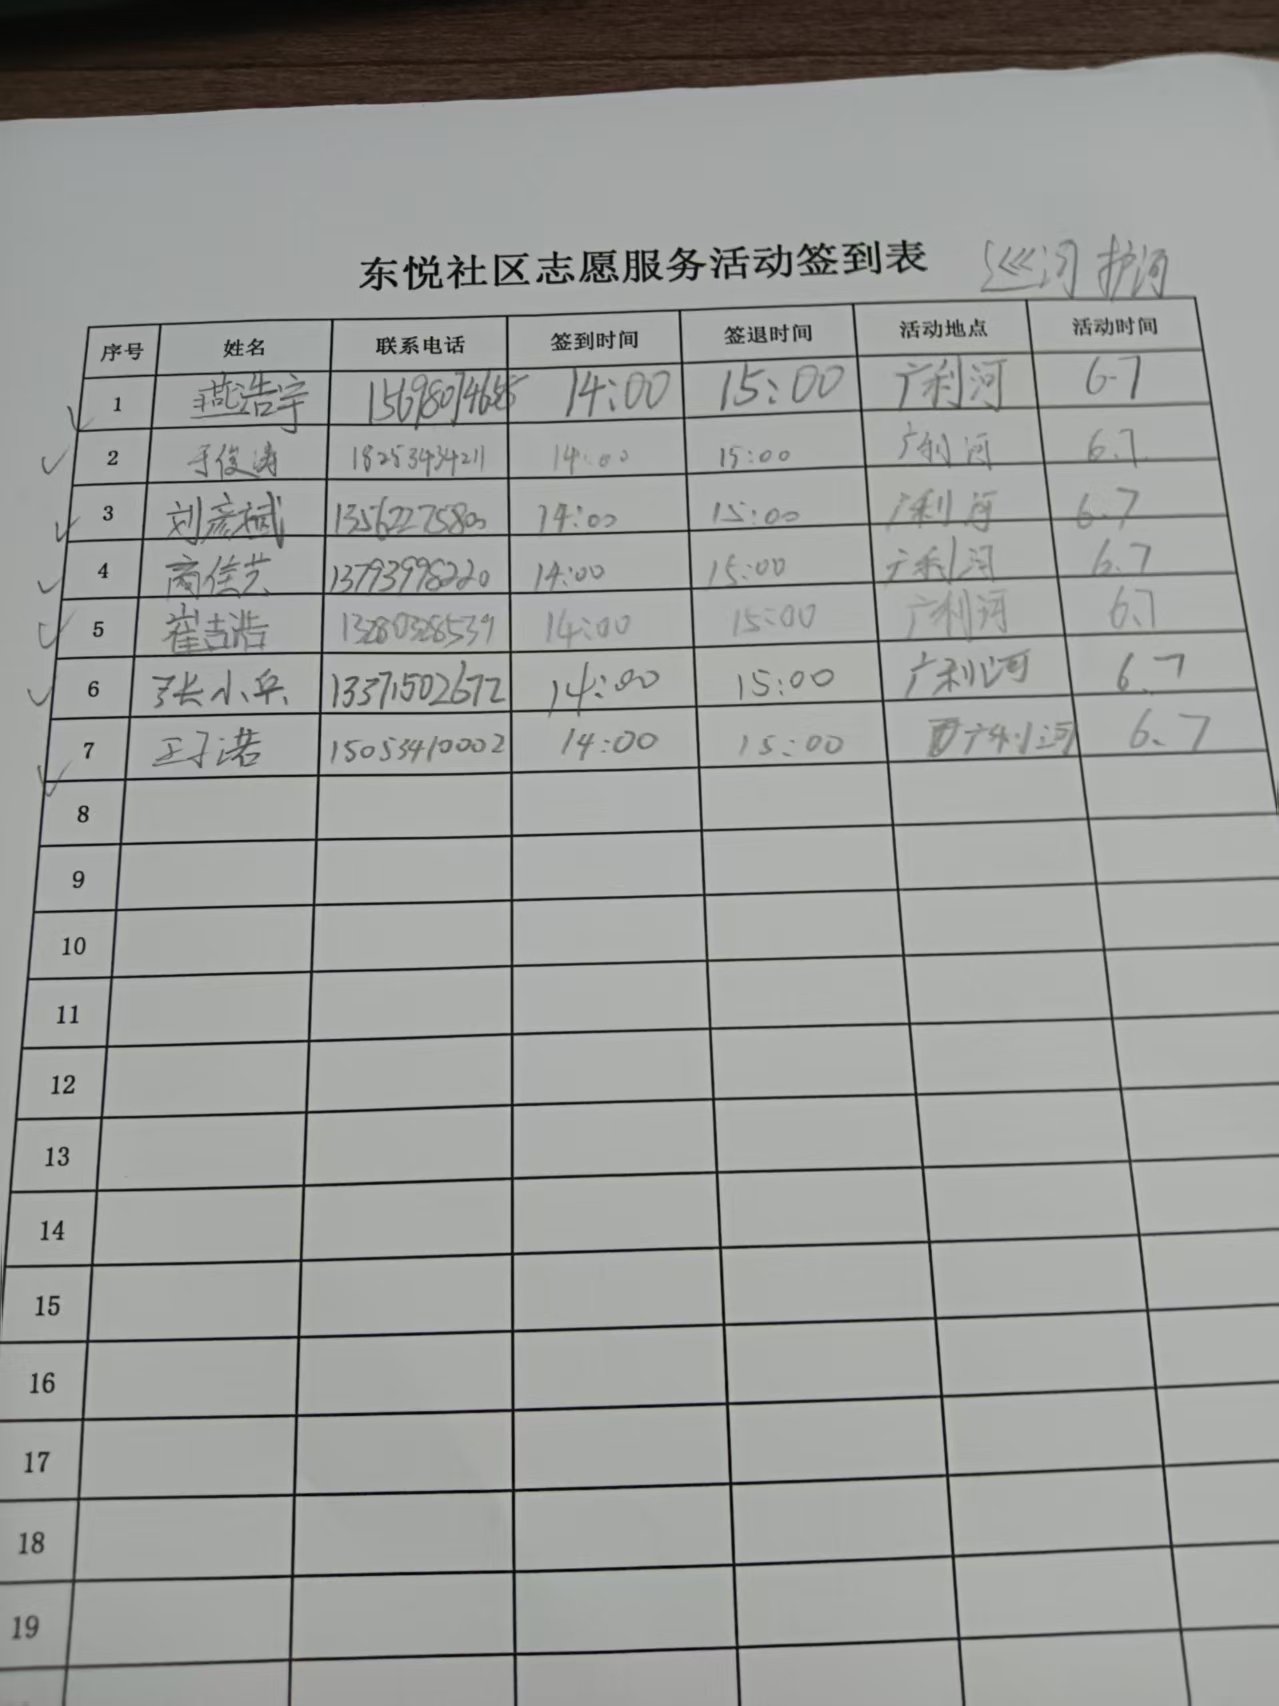 东悦社区志愿服务活动签到表 巡河 护河
序号 姓名 联系电话 签到时间 签退时间 活动地点 活动时间
1 燕浩宇 14:00 15:00 广利河 6.7
2 于俊涛 18253434211 14:00 15:00 广利河 6.7
3 刘彦斌 13562275800 14:00 15:00 广利河 6.7
4 商佳艺 13793998220 14:00 15:00 广利河 6.7
5 崔吉浩 13280328539 14:00 15:00 广利河 6.7
6 张小兵 13371502672 14:00 15:00 广利河 6.7
7 王子诺 15053410002 14:00 15:00 广利河 6.7
8
9
10
11
12
13
14
15
16
17
18
19